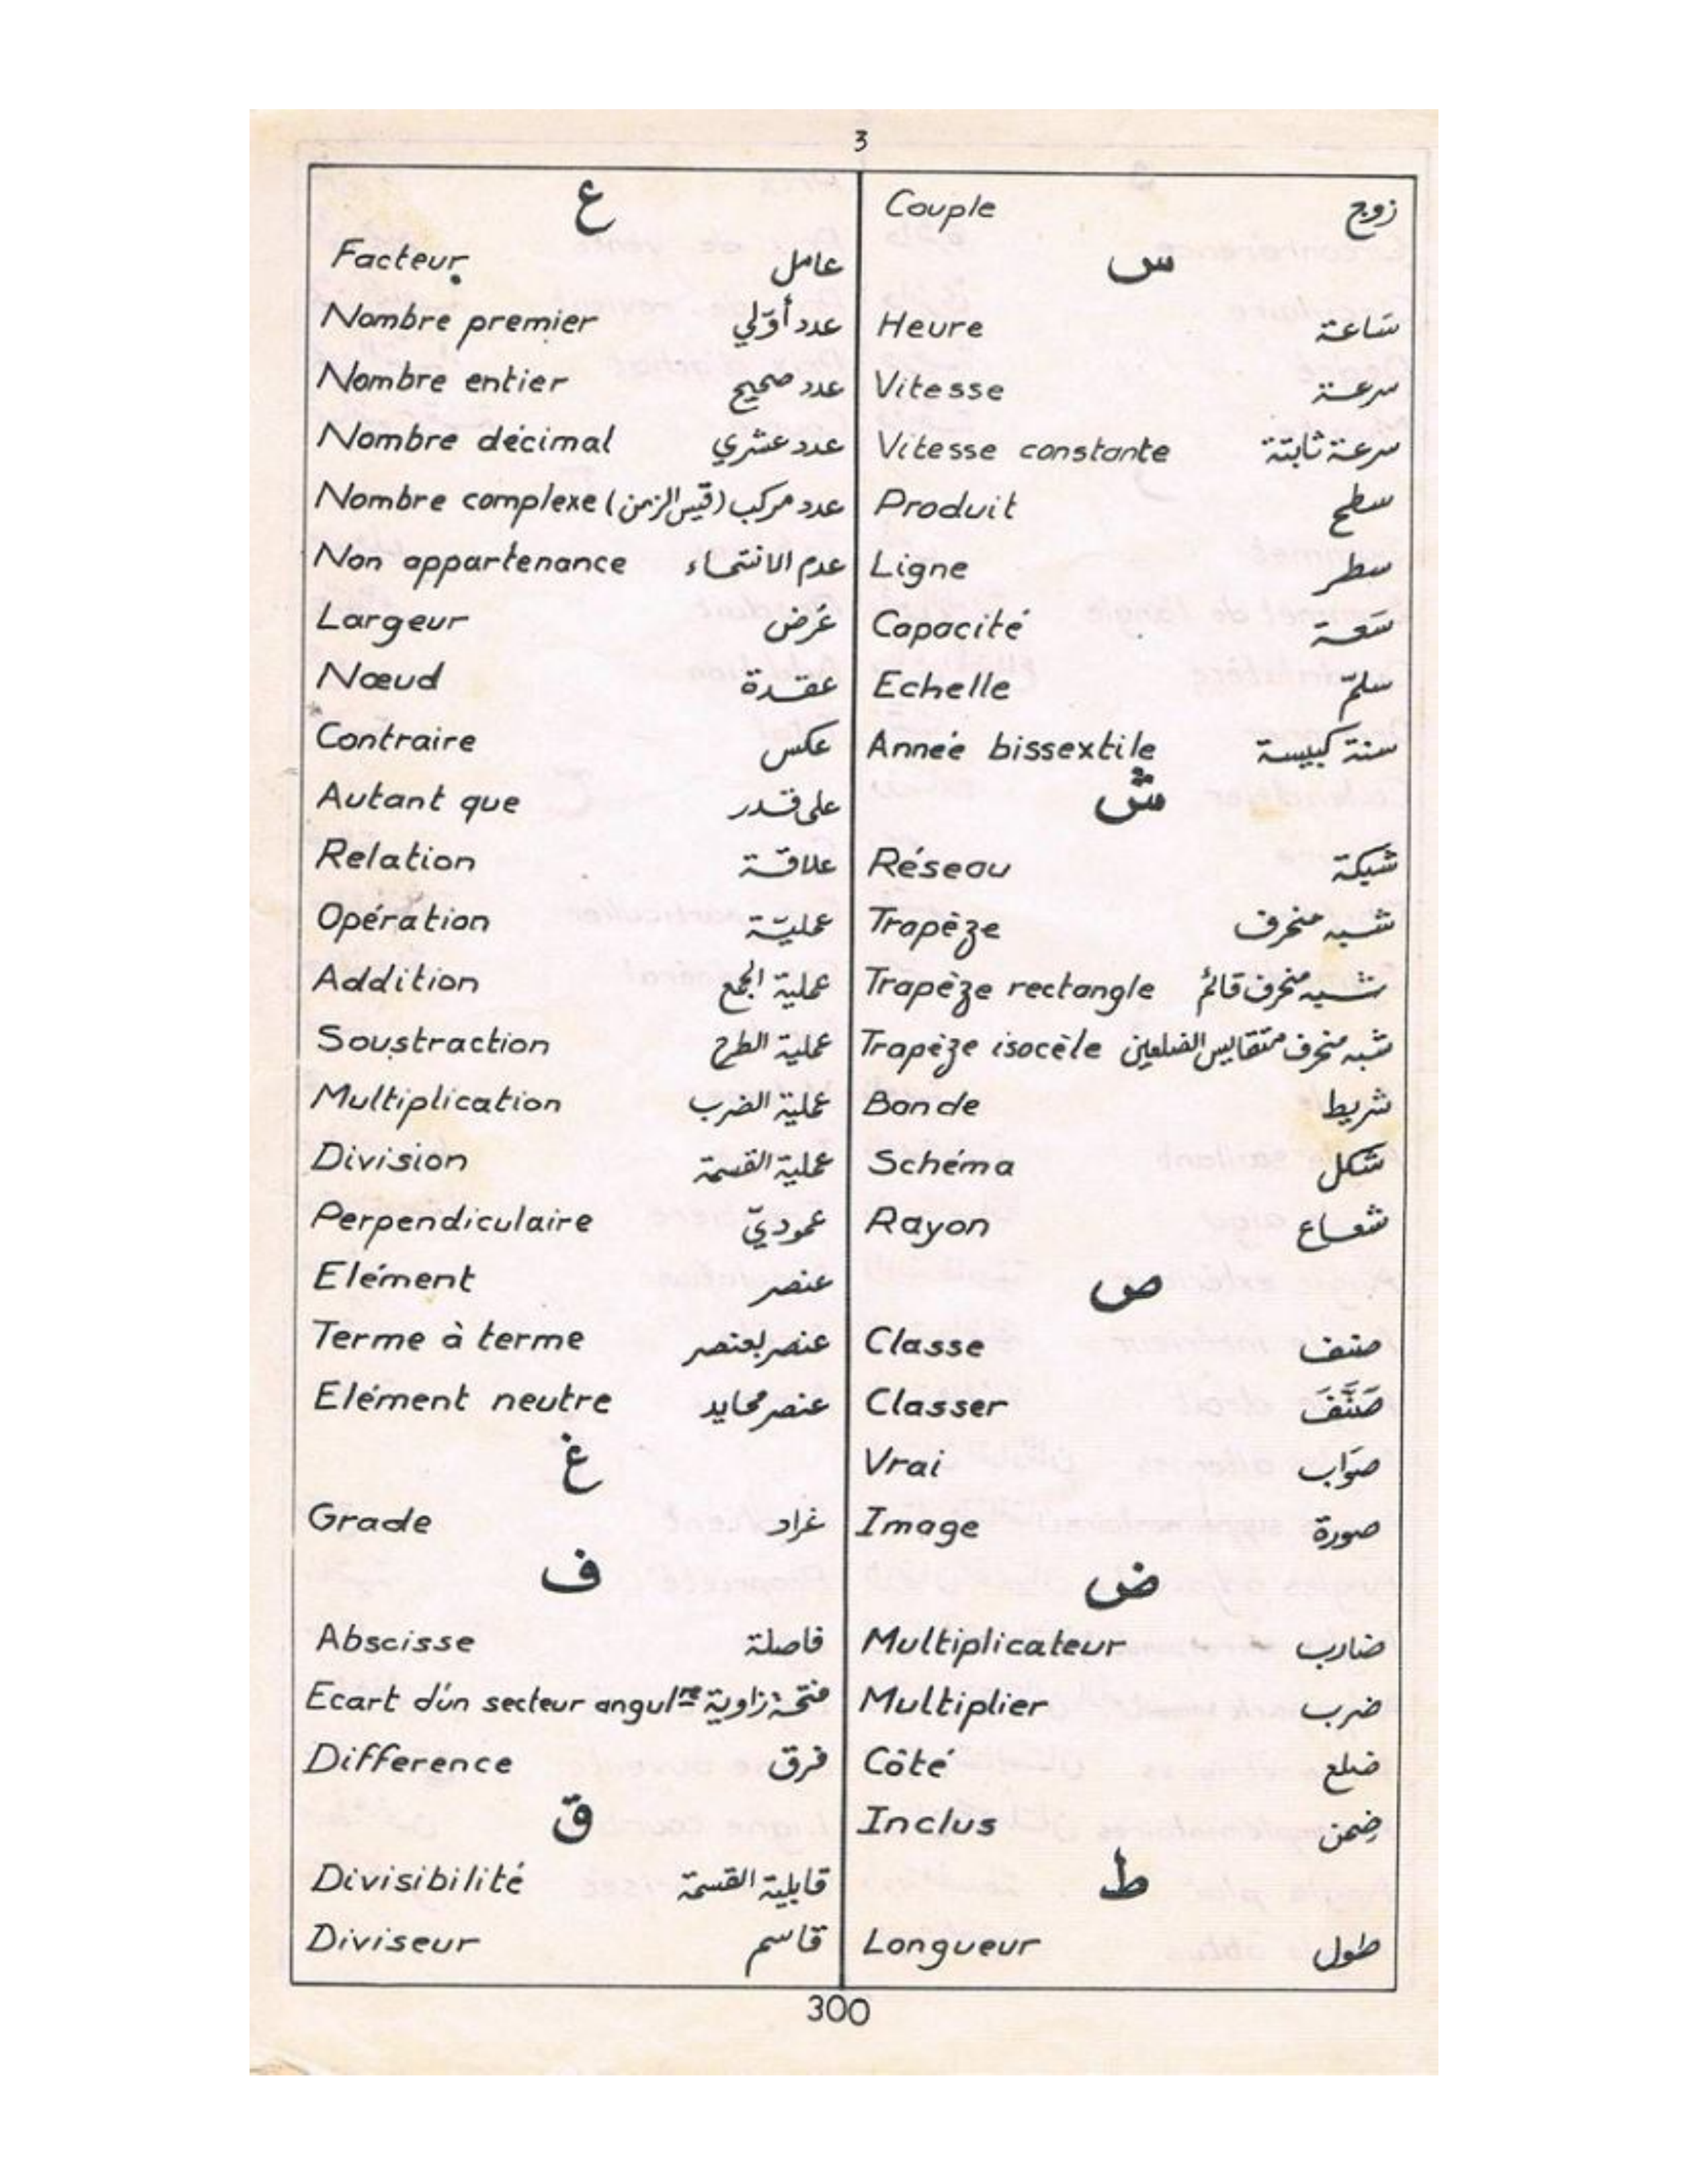 3
Couple زوج
س
Heure سَاعة
Vitesse سرعة
Vitesse constante سرعة ثابتة
Produit سطح
Ligne سطر
Capacité سَعة
Echelle سلّم
Anneé bissextile سنة كبيسة
ش
Réseau شبكة
Trapèze شبه منحرف
Trapèze rectangle شبه منحرف قائم
Trapèze isocèle شبه منحرف متقايس الضلعين
Bande شريط
Schéma شكل
Rayon شعاع
ص
Classe صنف
Classer صَنَّفَ
Vrai صوَاب
Image صورة
ض
Multiplicateur ضارب
Multiplier ضرب
Côté ضلع
Inclus ضِمن
ط
Longueur طول
ع
Facteur عامل
Nombre premier عدد أوّلي
Nombre entier عدد صحيح
Nombre décimal عدد عشري
Nombre complexe عدد مركب (قيس الزمن)
Non appartenance عدم الانتماء
Largeur عَرض
Nœud عقدة
Contraire عكس
Autant que على قدر
Relation علاقة
Opération عمليّة
Addition عملية الجمع
Soustraction عملية الطرح
Multiplication عملية الضرب
Division عملية القسمة
Perpendiculaire عموديّ
Elément عنصر
Terme à terme عنصر بعنصر
Elément neutre عنصر محايد
غ
Grade غراد
ف
Abscisse فاصلة
Ecart d'un secteur angulre فتحة زاوية
Difference فرق
ق
Divisibilité قابلية القسمة
Diviseur قاسم
300